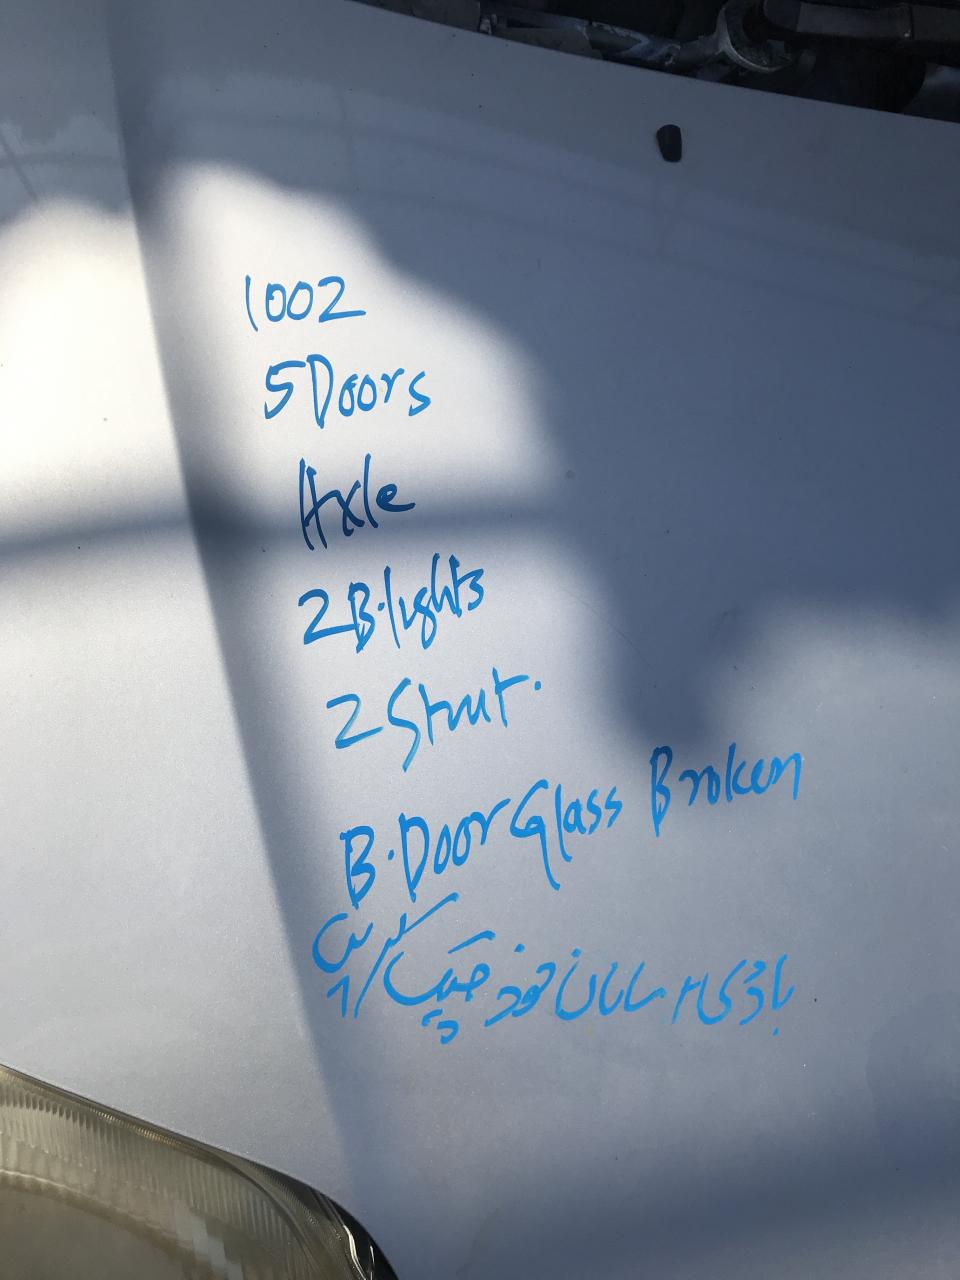 1002
5 Doors
Axle
2 B.lights
2 Strut.
B.Door Glass Broken
باڈی / سامان خود چیک
کریں